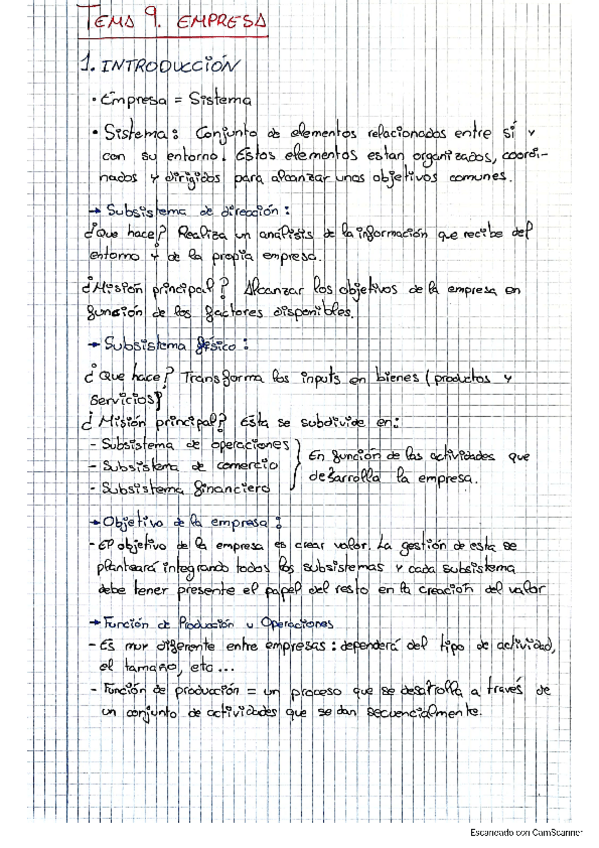 TEMA 9. EMPRESA
1. INTRODUCCIÓN
• Empresa = Sistema
• Sistema: Conjunto de elementos relacionados entre sí y
con su entorno. Estos elementos estan organizados, coordi-
nados y dirigidos para alcanzar unos objetivos comunes.
→ Subsistema de dirección:
¿Que hace? Realiza un análisis de la información que recibe del
entorno y de la propia empresa.
¿Misión principal? Alcanzar los objetivos de la empresa en
función de los factores disponibles.
→ Subsistema físico:
¿Que hace? Transforma los inputs en bienes (productos y
servicios)
¿Misión principal? Esta se subdivide en:
- Subsistema de operaciones
- Subsistema de comercio
- Subsistema financiero
En función de las actividades que
desarrolla la empresa.
→ Objetivo de la empresa:
- El objetivo de la empresa es crear valor. La gestión de esta se
planteará integrando todos los subsistemas y cada subsistema
debe tener presente el papel del resto en la creación del valor
→ Función de Producción u Operaciones
- Es muy diferente entre empresas: dependerá del tipo de actividad,
el tamaño, etc...
- Función de producción = un proceso que se desarrolla a través de
un conjunto de actividades que se dan secuencialmente.
Escaneado con CamScanner